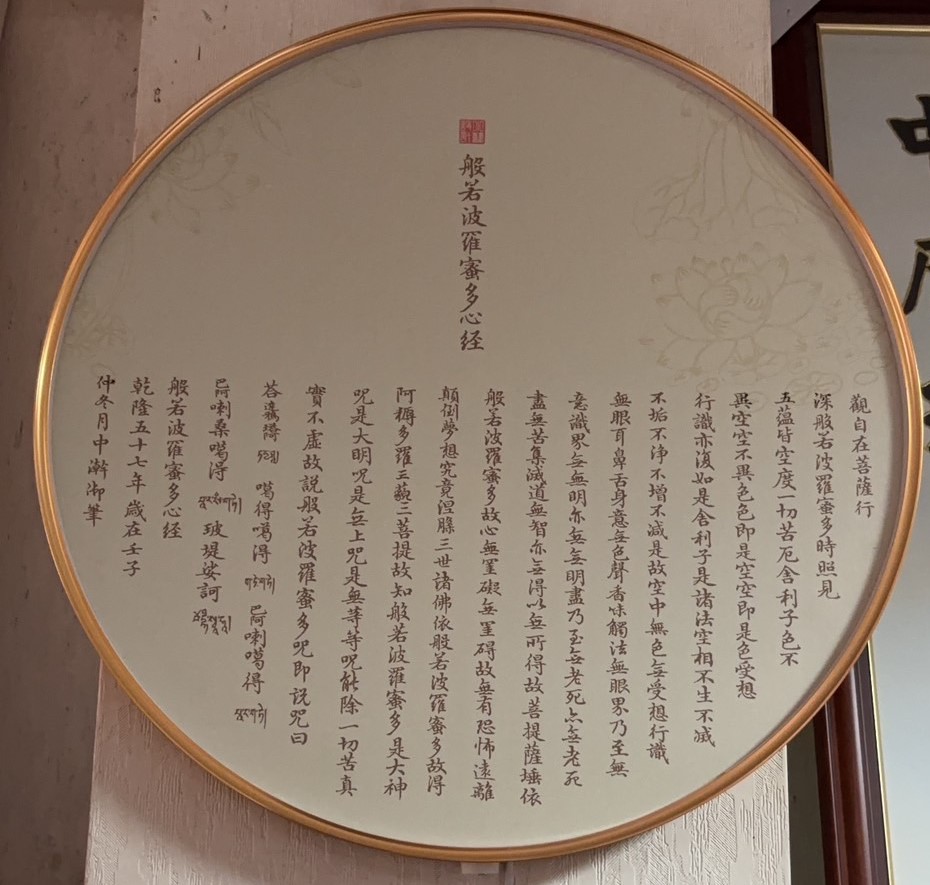 般若波羅蜜多心経
觀自在菩薩行
深般若波羅蜜多時照見
五蘊皆空度一切苦厄舍利子色不
異空空不異色色即是空空即是色受想
行識亦復如是舍利子是諸法空相不生不滅
不垢不浄不增不减是故空中無色無受想行識
無眼耳鼻舌身意無色聲香味觸法無眼界乃至無
意識界無無明亦無無明盡乃至無老死亦無老死
盡無苦集滅道無智亦無得以無所得故菩提薩埵依
般若波羅蜜多故心無罣礙無罣碍故無有恐怖遠離
顛倒夢想究竟涅槃三世諸佛依般若波羅蜜多故得
阿耨多羅三藐三菩提故知般若波羅蜜多是大神
咒是大明咒是無上咒是無等等咒能除一切苦真
實不虛故説般若波羅蜜多咒即説咒曰
噶得噶得 巴喇噶得
巴喇桑噶得 玻堤娑訶
般若波羅蜜多心経
乾隆五十七年歳在壬子
仲冬月中澣御筆
中